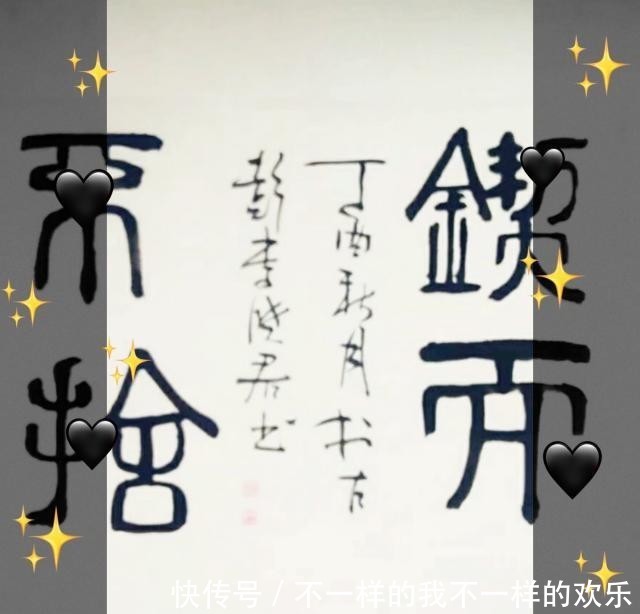 鍥而
不捨
丁酉秋月於古
彭李晓君书
快传号 / 不一样的我不一样的欢乐